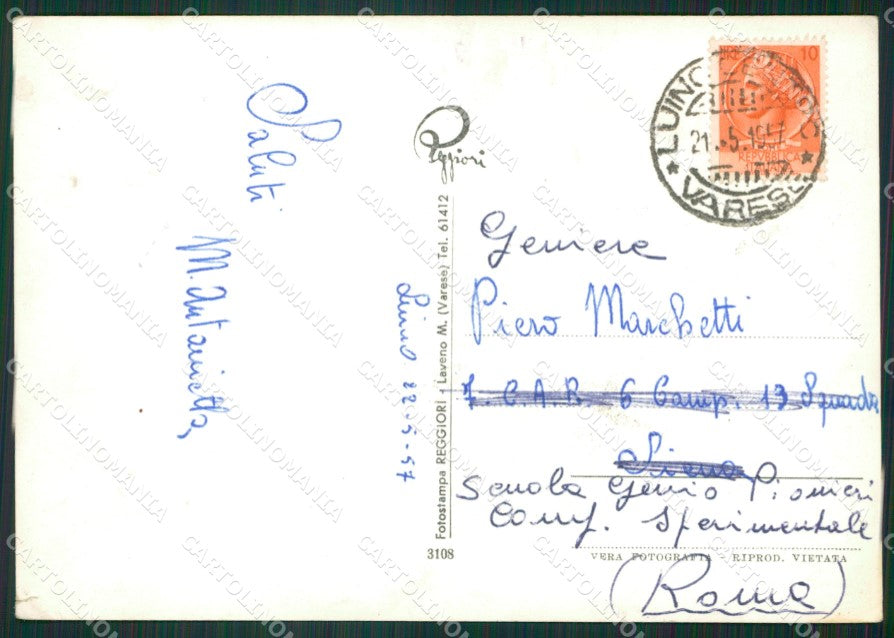 Saluti
M. Antonietta,
Luino 22-5-57
Reggiori
Fotostampa REGGIORI - Laveno M. (Varese) Tel. 61412
3108
10
LUINO
21.-5.1957
VARESE
REPVBBLICA
Geniere
Piero Marchetti
7. C.A.R. 6 Comp. 13 Squadra
Siena
Scuola Genio Pionieri
Comp. Sperimentale
VERA FOTOGRAFIA - RIPROD. VIETATA
(Roma)
CARTOLINOMANIA